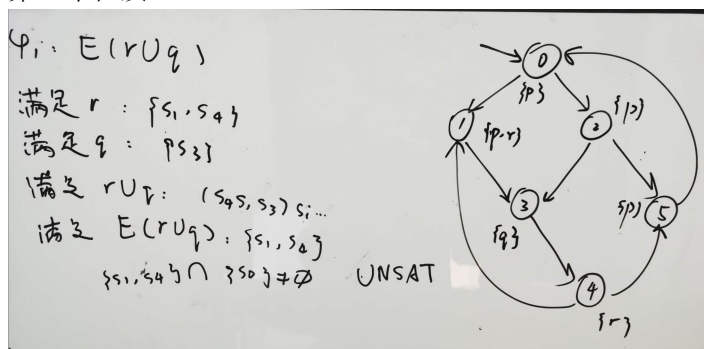 φ₁: E(rUq)
满足 r : {s₁, s₄}
满足 q : {s₃}
满足 rUq: (s₄s₁s₃)sᵢ...
满足 E(rUq): {s₁, s₄}
{s₁,s₄} ∩ {s₀} ≠ ∅ UNSAT
0
{p}
1
{p.r}
2
{p}
3
{q}
{p}
5
4
{r}